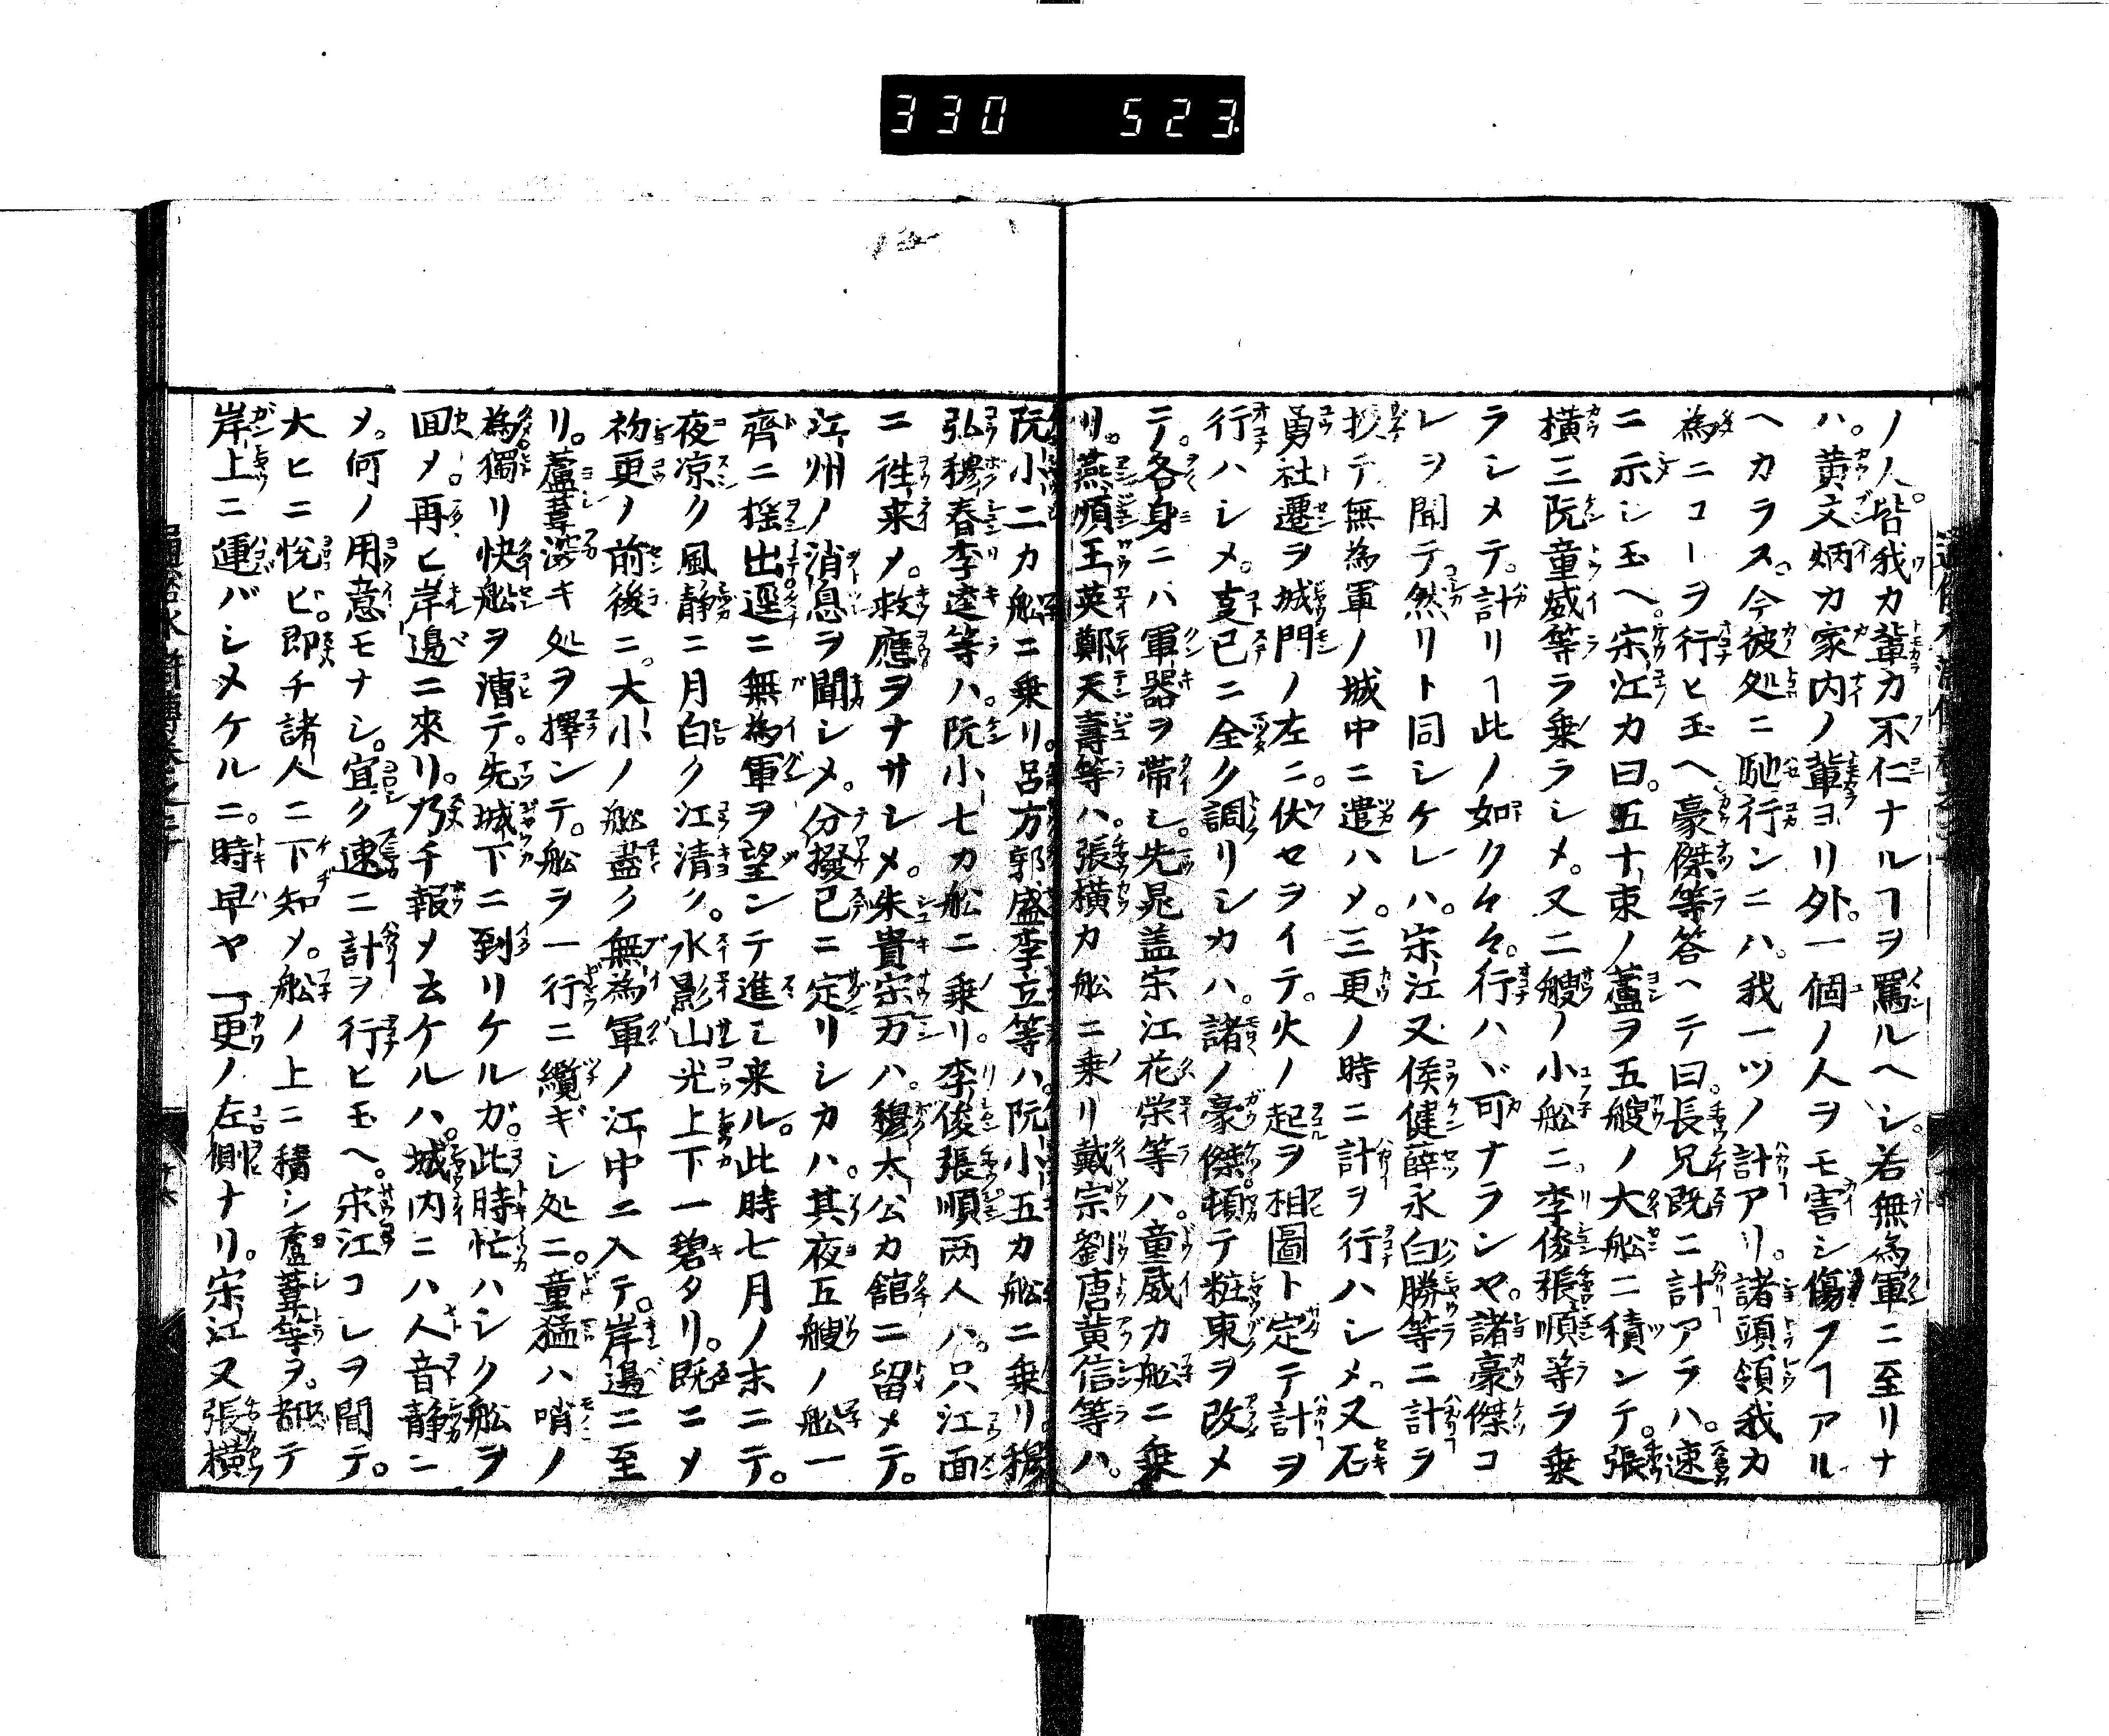 330 523.
ノ人。皆我カ輩カ不仁ナルヿヲ罵ルヘシ。若無為軍ニ至リナ
ハ。黄文炳カ家内ノ輩ヨリ外。一個ノ人ヲモ害シ傷フヿアル
ヘカラス。今彼処ニ馳行ンニハ。我一ツノ計アリ。諸頭領我カ
為ニコーヲ行ヒ玉ヘ豪傑等答ヘテ曰。長兄既ニ計アラハ。速
ニ示シ玉ヘ。宋江カ曰。五十束ノ蘆ヲ五艘ノ大舩ニ積ンテ。張
横三阮童威等ラ乗ラシメ。又二艘ノ小舩ニ。李俊張順等ヲ乗
ラシメテ。計リヿ此ノ如ク々々。行ハヾ可ナランヤ。諸豪傑コ
レヲ聞テ然リト同シケレハ。宋江又侯健薛永白勝等ニ計ヲ
授テ無為軍ノ城中ニ遣ハメ。三更ノ時ニ計ヲ行ハシメ。又石
勇杜遷ヲ城門ノ左ニ。伏セヲイテ。火ノ起ヲ相圖ト定テ計ヲ
行ハシメ。支已ニ全ク調リシカハ。諸ノ豪傑頓テ粧束ヲ改メ
テ。各身ニハ軍器ヲ帯シ。先晁盖宋江花栄等ハ。童威カ舩ニ乗
リ。燕順王英鄭天壽等ハ。張横カ舩ニ乗リ戴宗劉唐黄信等ハ。
阮小二カ舩ニ乗リ。呂方郭盛李立等ハ。阮小五カ舩ニ乗リ。穆
弘穆春李逵等ハ。阮小七カ舩ニ乗リ。李俊張順两人ハ。只江面
ニ徃来メ。救應ヲナサシメ。朱貴宗万ハ。穆太公カ館ニ留メテ。
江州ノ消息ヲ聞シメ。分撥已ニ定リシカハ。其夜五艘ノ舩一
齊ニ揺出逕ニ無為軍ヲ望ンテ進ミ来ル。此時七月ノ末ニテ。
夜凉ク風静ニ月白ク江清ク。水影山光上下一碧タリ。既ニメ
初更ノ前後ニ。大小ノ舩盡ク無為軍ノ江中ニ入テ。岸邉ニ至
リ。蘆葦深キ処ヲ擇ンテ。舩ヲ一行ニ纜ギシ処ニ。童猛ハ哨ノ
為獨リ快舩ヲ漕テ。先城下ニ到リケルガ。此時忙ハシク舩ヲ
回メ。再ヒ岸邉ニ來リ。乃チ報メ去ケルハ。城内ニハ人音静ニ
メ。何ノ用意モナシ。宜ク速ニ計ヲ行ヒ玉ヘ。宋江コレヲ聞テ。
大ヒニ悦ビ。即チ諸人ニ下知メ。舩ノ上ニ積シ蘆葦等ヲ。都テ
岸上ニ運バシメケルニ。時早ヤ一更ノ左側ナリ。宋江又張横